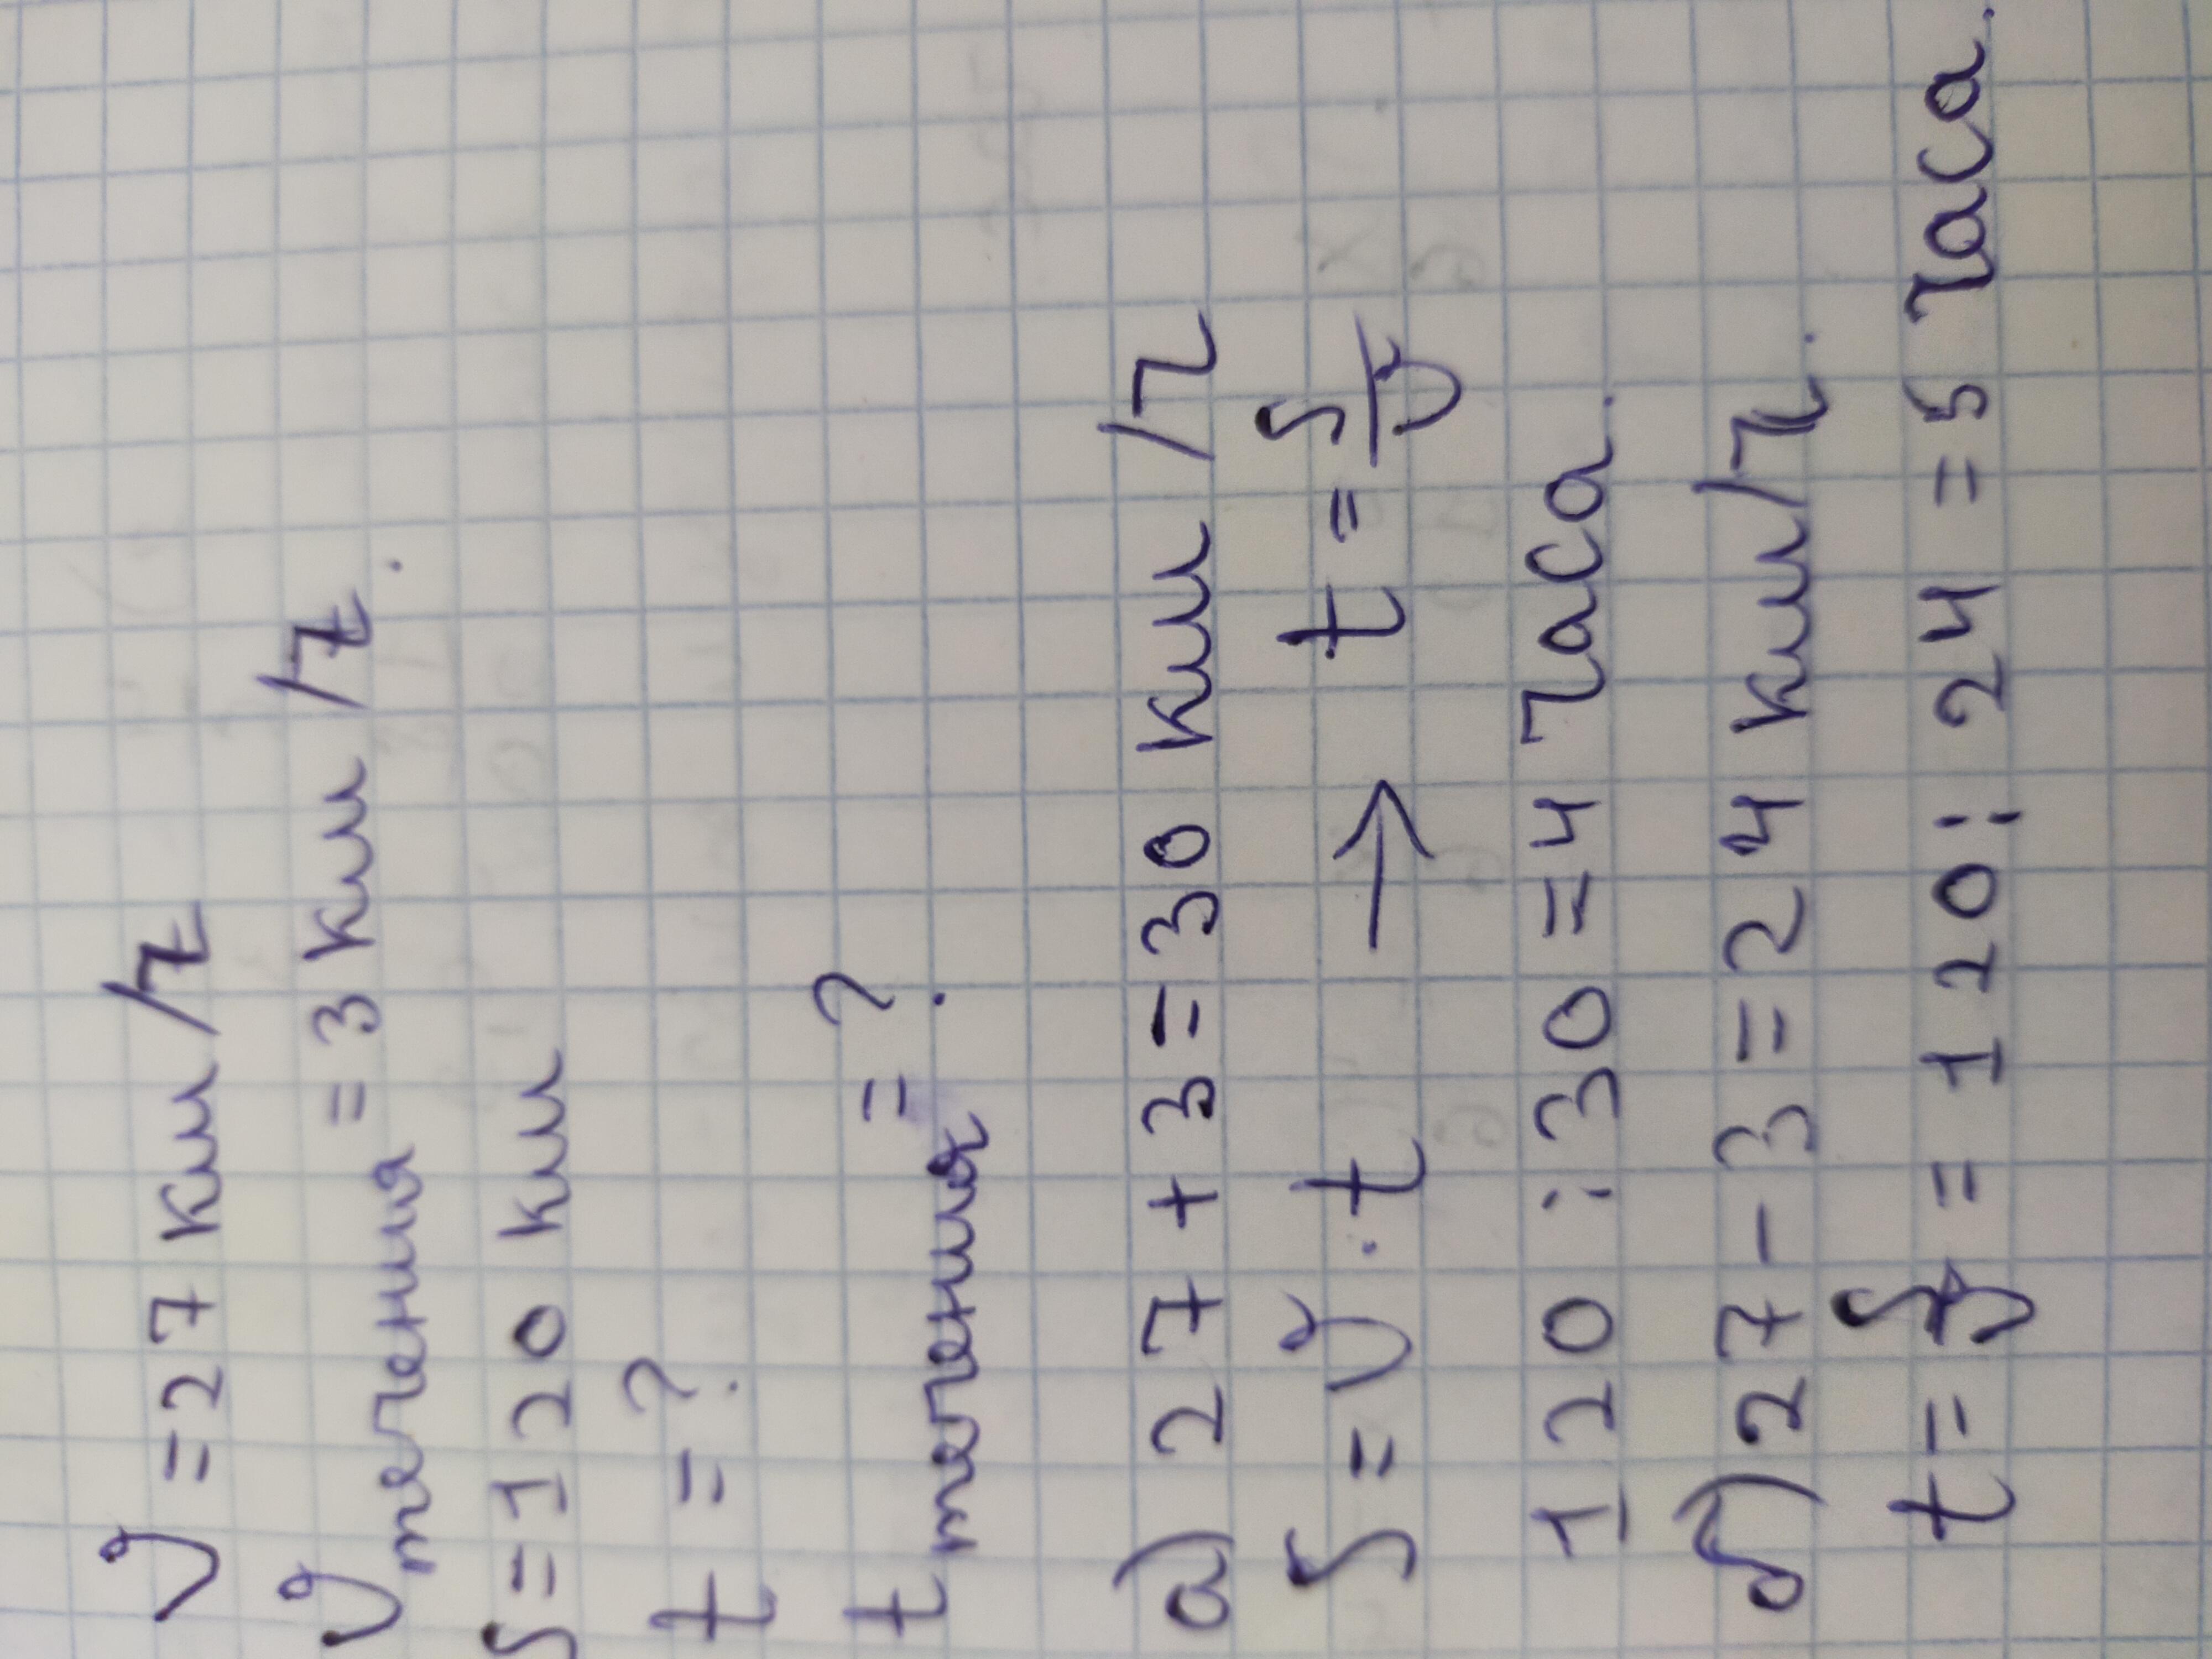 V = 27 км/ч
Vтечения = 3 км/ч.
S = 120 км
t = ?
tтечения = ?
а) 27 + 3 = 30 км/ч
S = V · t → t = S/V
120 : 30 = 4 часа.
б) 27 - 3 = 24 км/ч.
t = S/V = 120 : 24 = 5 часа.